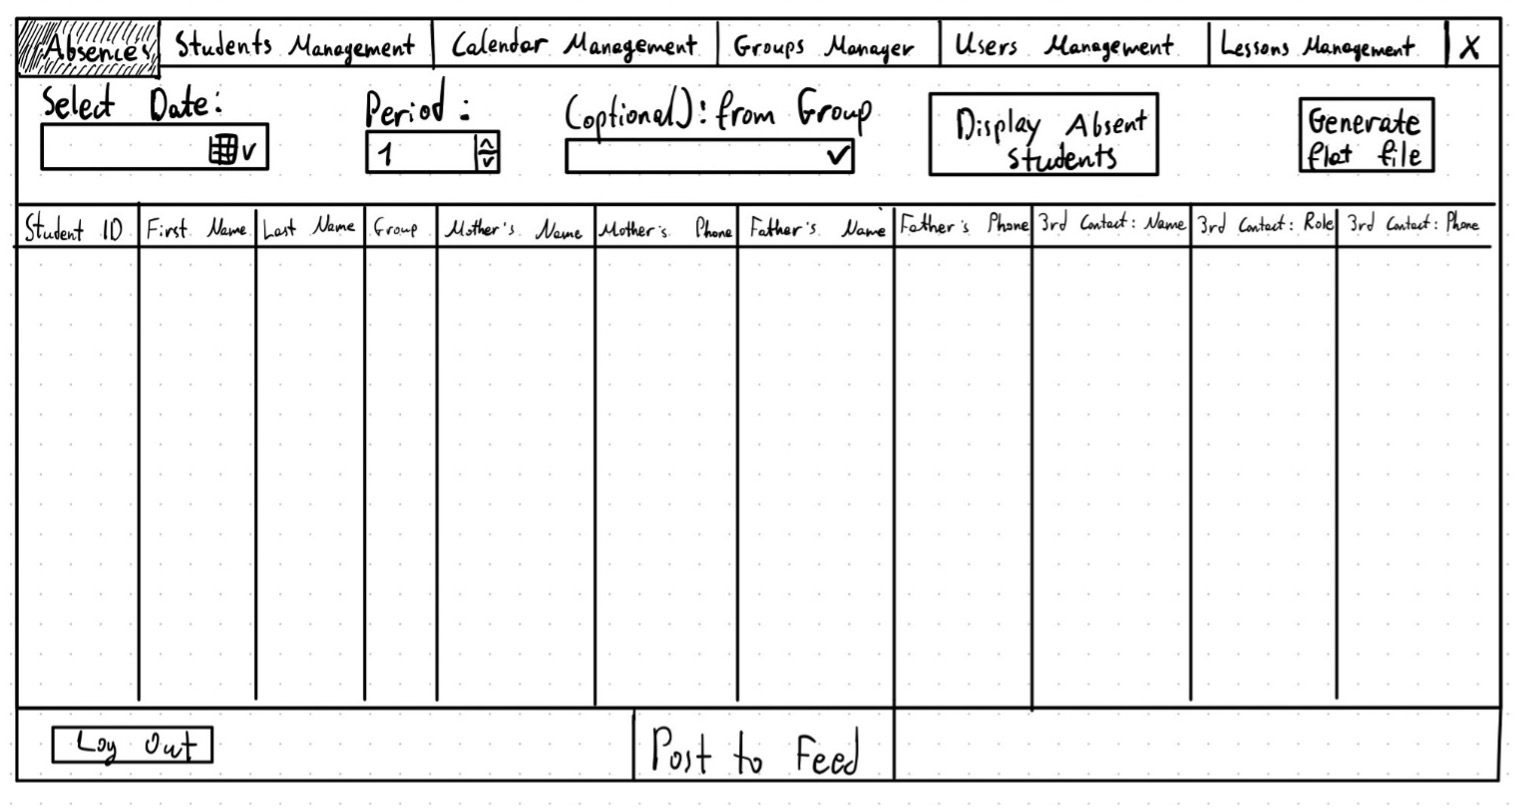 Absences Students Management Calendar Management Groups Manager Users Management Lessons Management X
Select Date: Period: (optional): from Group
Display Absent
Students
Generate
flat file
1
Student ID First Name Last Name Group Mother's Name Mother's Phone Father's Name Father's Phone 3rd Contact: Name 3rd Contact: Role 3rd Contact: Phone
Log Out Post to Feed